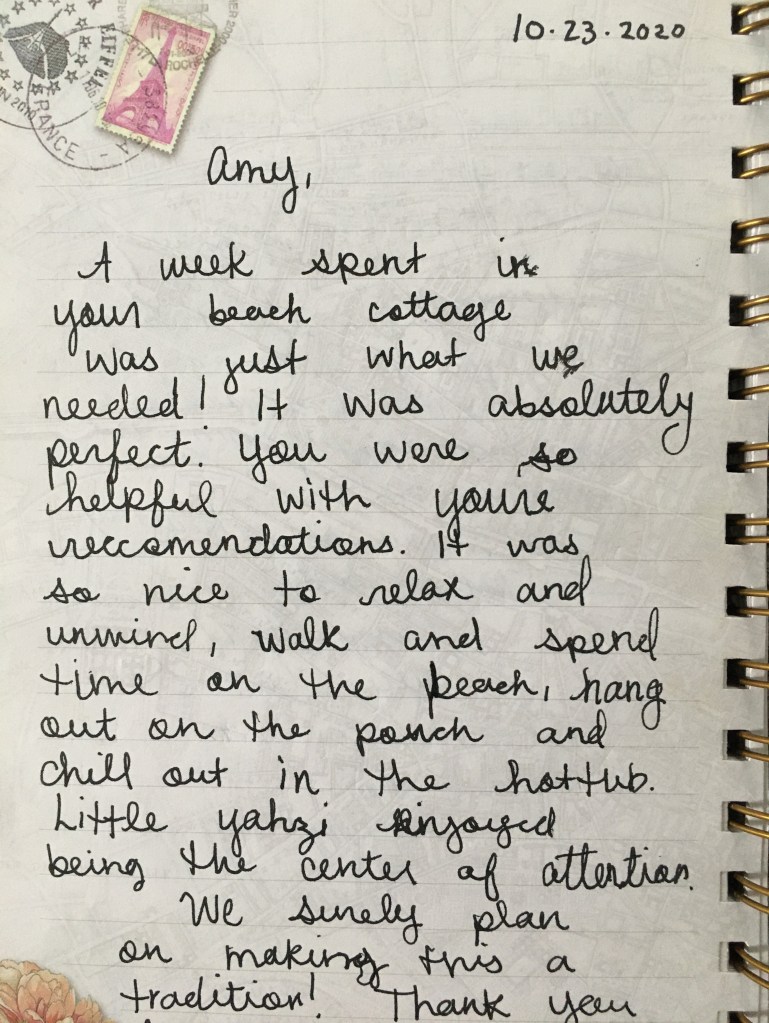 10.23.2020
EIFFEL
FRANCE
Amy,
A week spent in
your beach cottage
was just what we
needed! It was absolutely
perfect. You were so
helpful with youre
reccomendations. It was
so nice to relax and
unwind, walk and spend
time on the beach, hang
out on the porch and
chill out in the hottub.
Little yahzi enjoyed
being the center of attention.
We surely plan
on making this a
tradition! Thank you